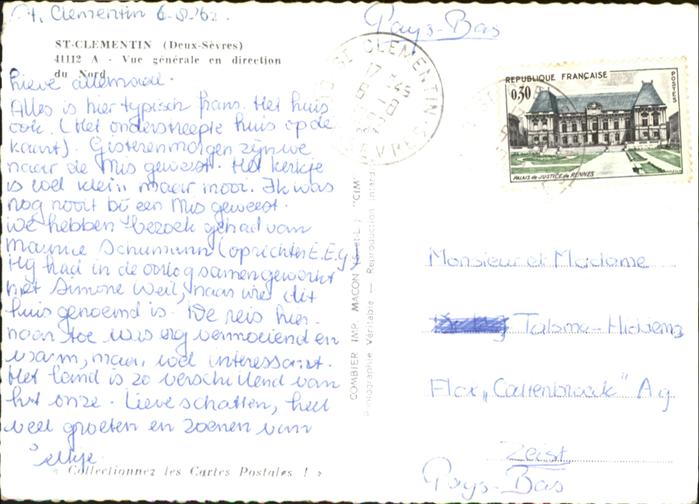 St. Clementin 6-8-'62.
Pays-Bas
ST-CLEMENTIN (Deux-Sèvres)
41112 A - Vue générale en direction
du Nord
Lieve allemaal.
Alles is hier typisch frans. Het huis
ook. (Het onderstreepte huis op de
kaart). Gisterenmorgen zijn we
naar de Mis geweest. Het kerkje
is wel klein maar mooi. Ik was
nog nooit bij een Mis geweest.
We hebben bezoek gehad van
Maurice Schumann (oprichter E.E.G.
Hij had in de oorlog samengewerkt
met Simone Weil, naar wie dit
huis genoemd is. De reis hier-
naar toe was erg vermoeiend en
warm, maar wel interessant.
Het land is zo verschillend van
het onze. Lieve schatten, heel
veel groeten en zoenen van
« Collectionnez les Cartes Postales ! »
COMBIER IMP. MACON "CIM"
Photographie Véritable - Reproduction interd
CLEMENTIN
17 45
6 8
SEVRES
REPUBLIQUE FRANÇAISE
POSTES
0,30
PALAIS DE JUSTICE DE RENNES
Monsieur et Madame
Talsma-
Flat "Cattenbroek" Ag
Zeist
Pays-Bas